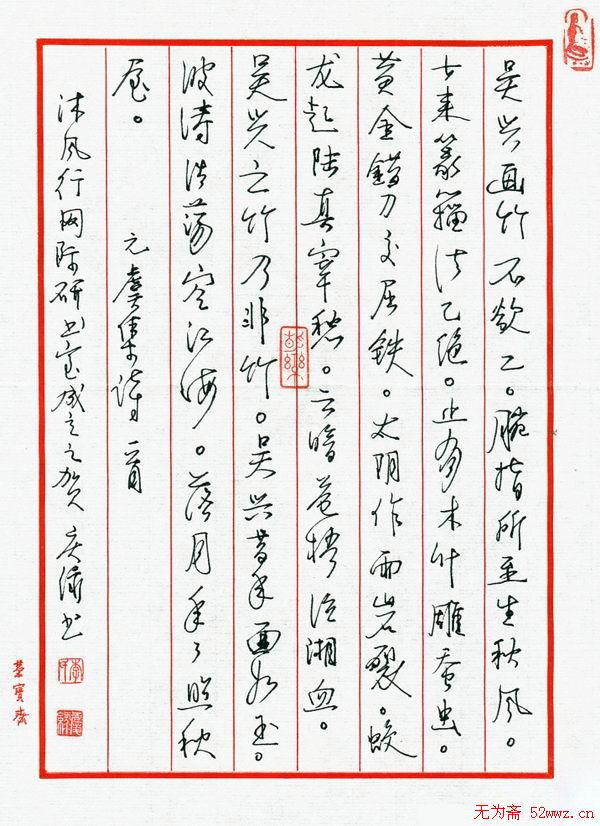 吴兴画竹不欲工。腕指所至生秋风。
古来篆籀法已绝。止有木叶雕蚕虫。
黄金错刀交屈铁。太阴作雨岩裂。蛟
龙起陆真宰愁。云暗苍梧泣湘血。
吴兴之竹乃非竹。吴兴昔年画如玉。
波涛浩荡空江海。落月年々照秋
屋。
元虞集诗一首
沐风行网际研书室成立之贺 书
荣寶斋
无为斋 52wwz.cn